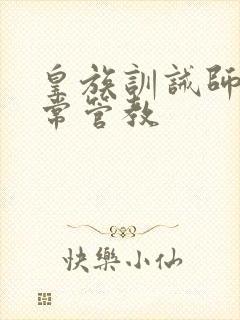 皇族訓誡師
常管教
快樂小仙